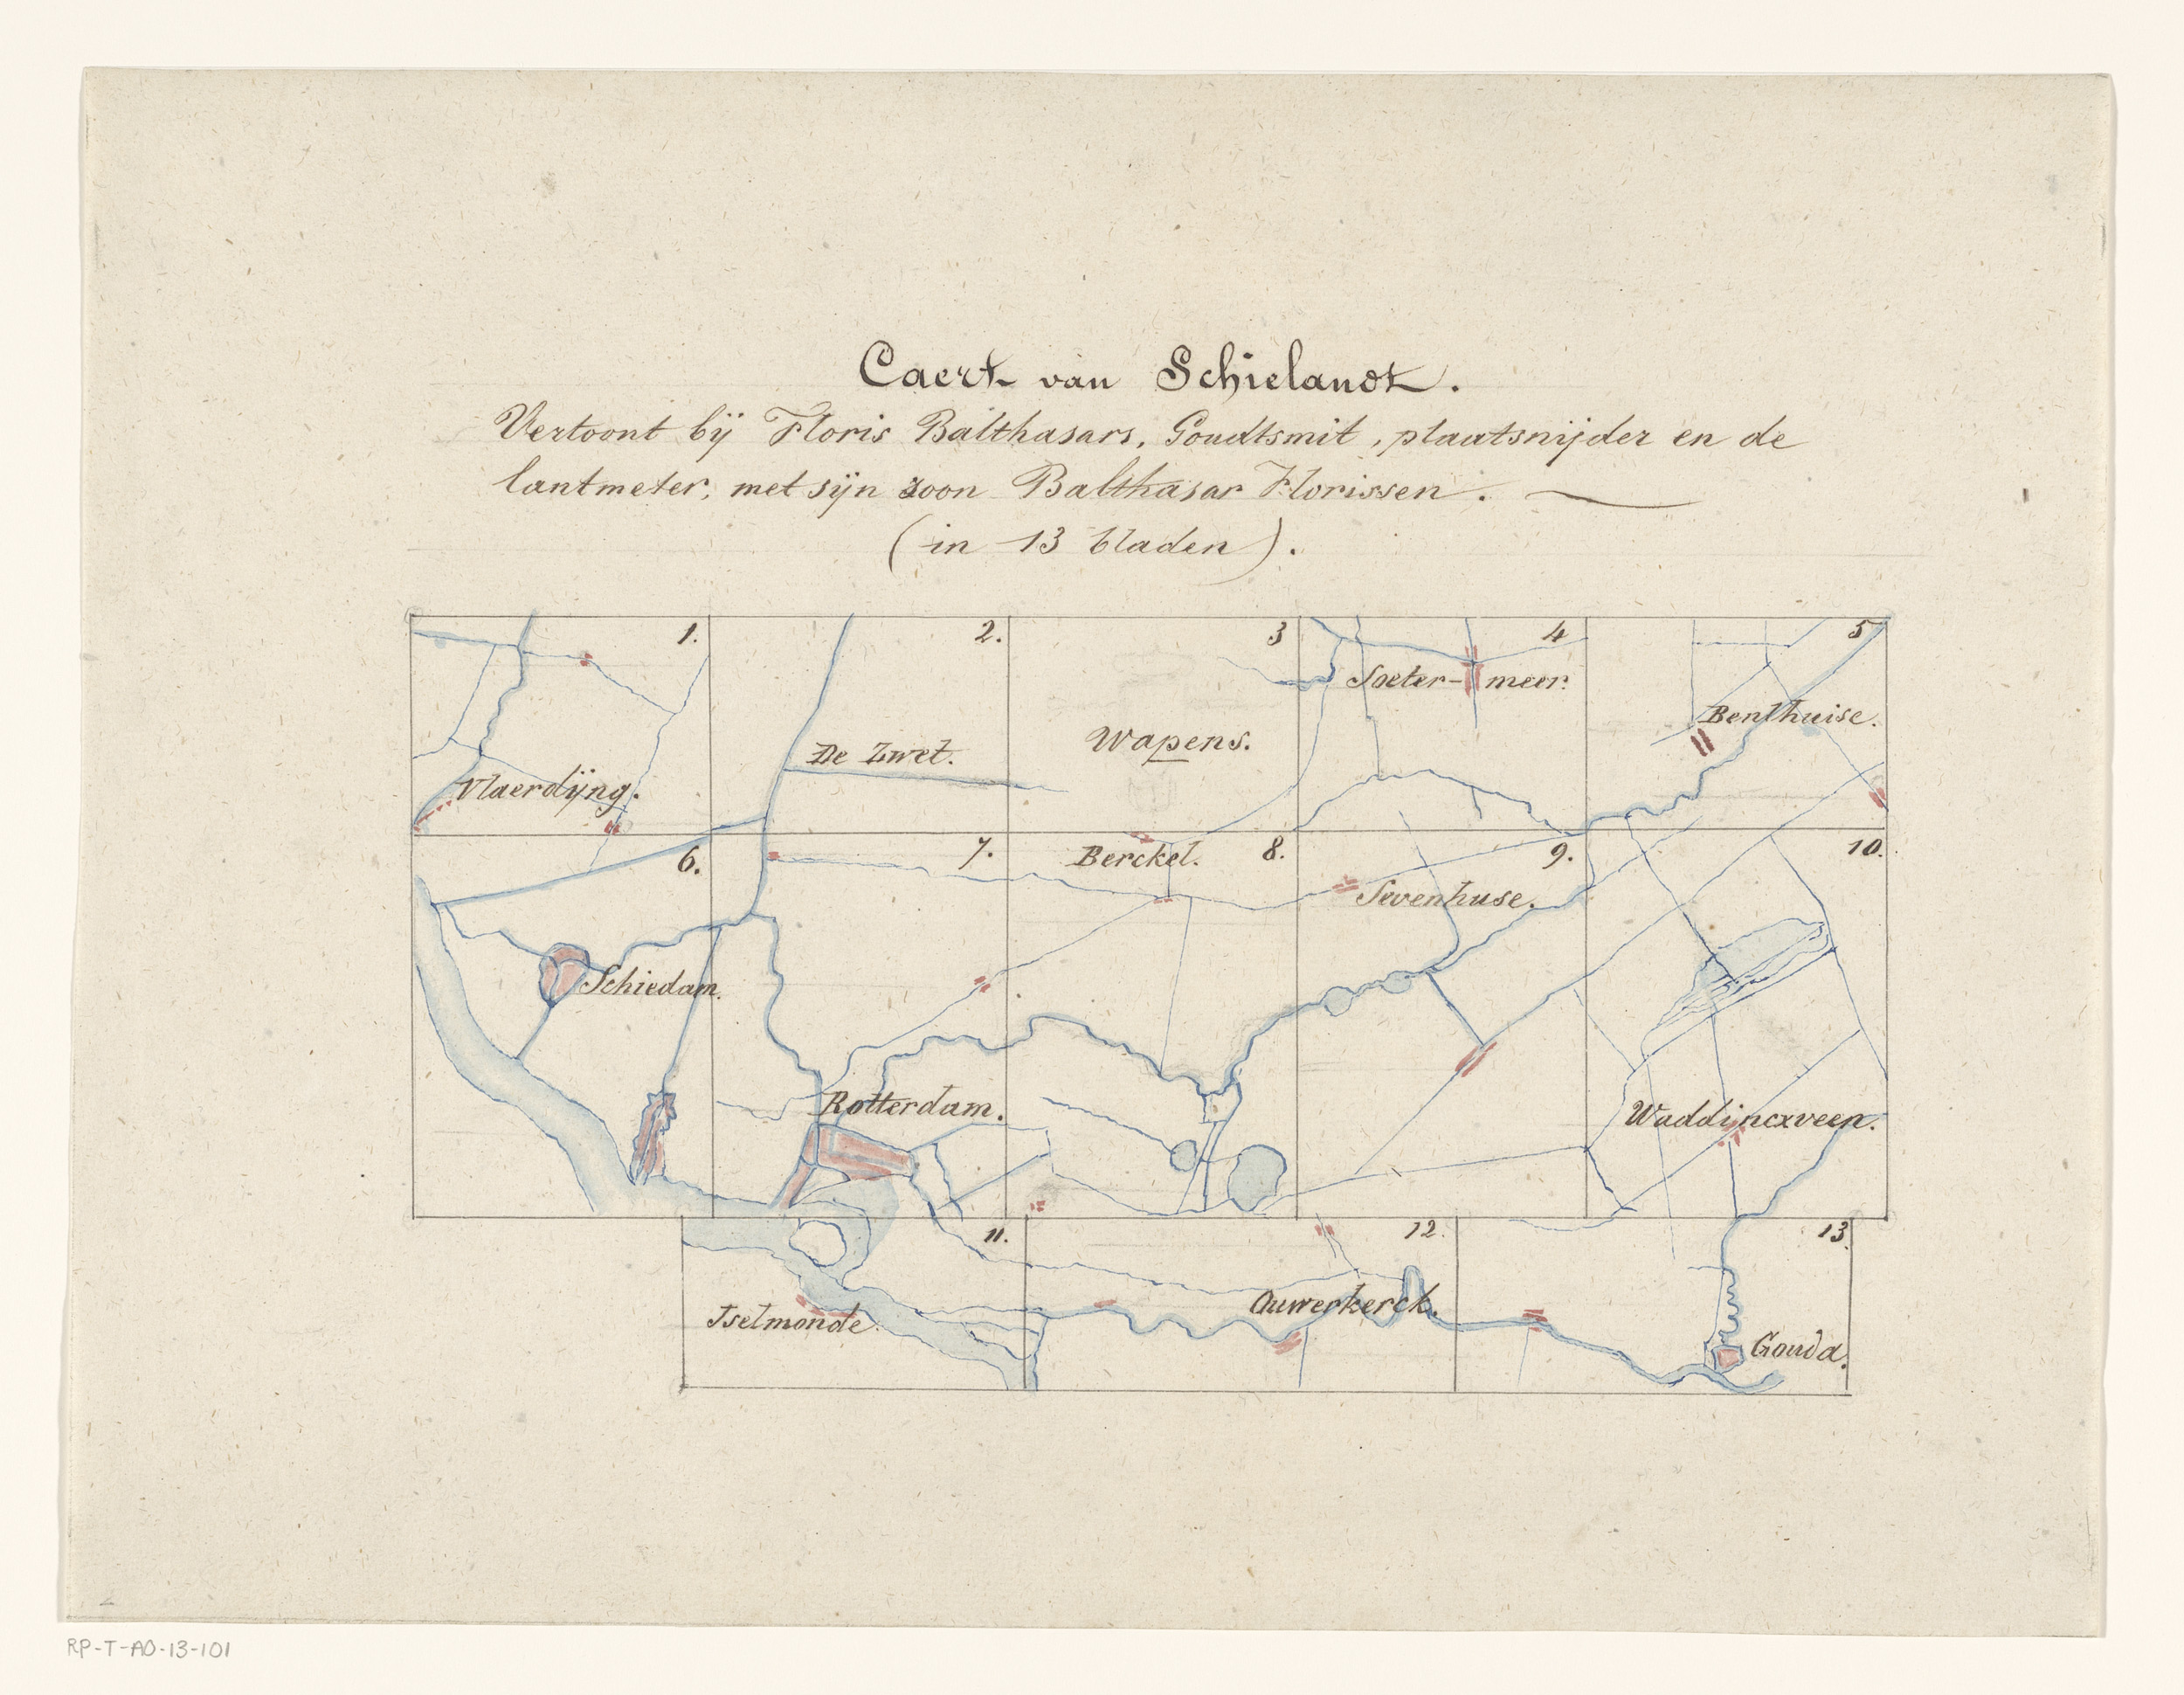 Caert van Schielandt.
Vertoont bij Floris Balthasars, Goudtsmit, plaatsnijder en de
lantmeter, met sijn zoon Balthasar Florissen.
(in 13 bladen).
1. 2. 3 4 5
Soeter-meer.
Benthuise.
Wapens.
De Zwet.
Vlaerdijng.
6. 7. 8. 9. 10.
Berckel.
Sevenhuse.
Schiedam.
Rotterdam.
Waddincxveen.
11. 12. 13.
Ouwerkerck.
Iselmonde.
Gouda.
RP-T-AO-13-101